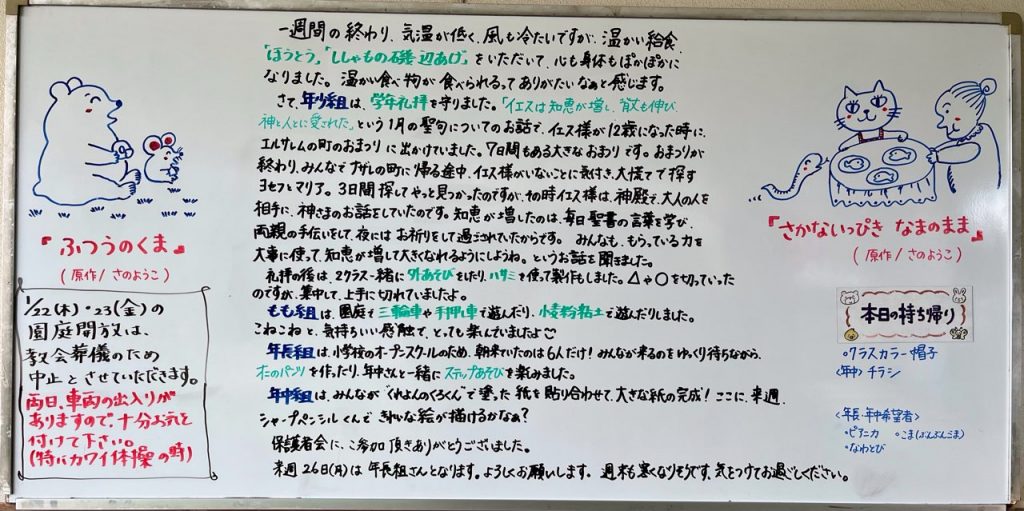 一週間の終わり、気温が低く、風も冷たいですが、温かい給食、
「ほうとう」「ししゃもの磯辺あげ」をいただいて、心も身体もぽかぽかに
なりました。温かい食べ物が食べられるってありがたいなぁと感じます。
さて、年少組は、学年礼拝を守りました。「イエスは知恵が増し、背丈も伸び、
神と人とに愛された」という1月の聖句についてのお話で、イエス様が12歳になった時に、
エルサレムの町のおまつりに出かけていました。7日間もある大きなおまつりです。おまつりが
終わり、みんなでナザレの町に帰る途中、イエス様がいないことに気付き、大慌てで探す
ヨセフとマリア。3日間探してやっと見つかったのですが、その時イエス様は、神殿で、大人の人を
相手に、神さまのお話をしていたのです。知恵が増したのは、毎日聖書の言葉を学び、
両親の手伝いをして、夜にはお祈りをして過ごされていたからです。みんなも、もらっている力を
大事に使って、知恵が増して大きくなれるようにしようね。というお話を聞きました。
礼拝の後は、2クラス一緒に外あそびをしたり、ハサミを使って製作もしました。△や○を切っていった
のですが、集中して、上手に切れていましたよ。
もも組は、園庭で三輪車や手押し車で遊んだり、小麦粉粘土で遊んだりしました。
こねこねと、気持ちいい感触で、とっても楽しんでいましたよ
年長組は、小学校のオープンスクールのため、朝来ていたのは6人だけ！みんなが来るのをゆっくり待ちながら、
オニのパンツを作ったり、年中さんと一緒にステップあそびを楽しみました。
年中組は、みんなが“くれよんのくろくん”で塗った紙を貼り合わせて、大きな紙の完成！ここに、来週、
シャープペンシルくんでどんな絵が描けるかなぁ？
保護者会に、ご参加頂きありがとうございました。
来週26日(月)は年長組さんとなります。よろしくお願いします。週末も寒くなりそうです、気をつけてお過ごしください。
『ふつうのくま』
(原作/さのようこ)
1/22(木)・23(金)の
園庭開放は、
教会葬儀のため
中止とさせていただきます。
両日、車両の出入りが
ありますので、十分お気を
付けて下さい。
(特にカワイ体操の時)
『さかないっぴき なまのまま』
(原作/さのようこ)
本日の持ち帰り
○クラスカラー帽子
〈年中〉チラシ
〈年長・年中希望者〉
・ピアニカ ・こま(ぶんぶんごま)
・なわとび